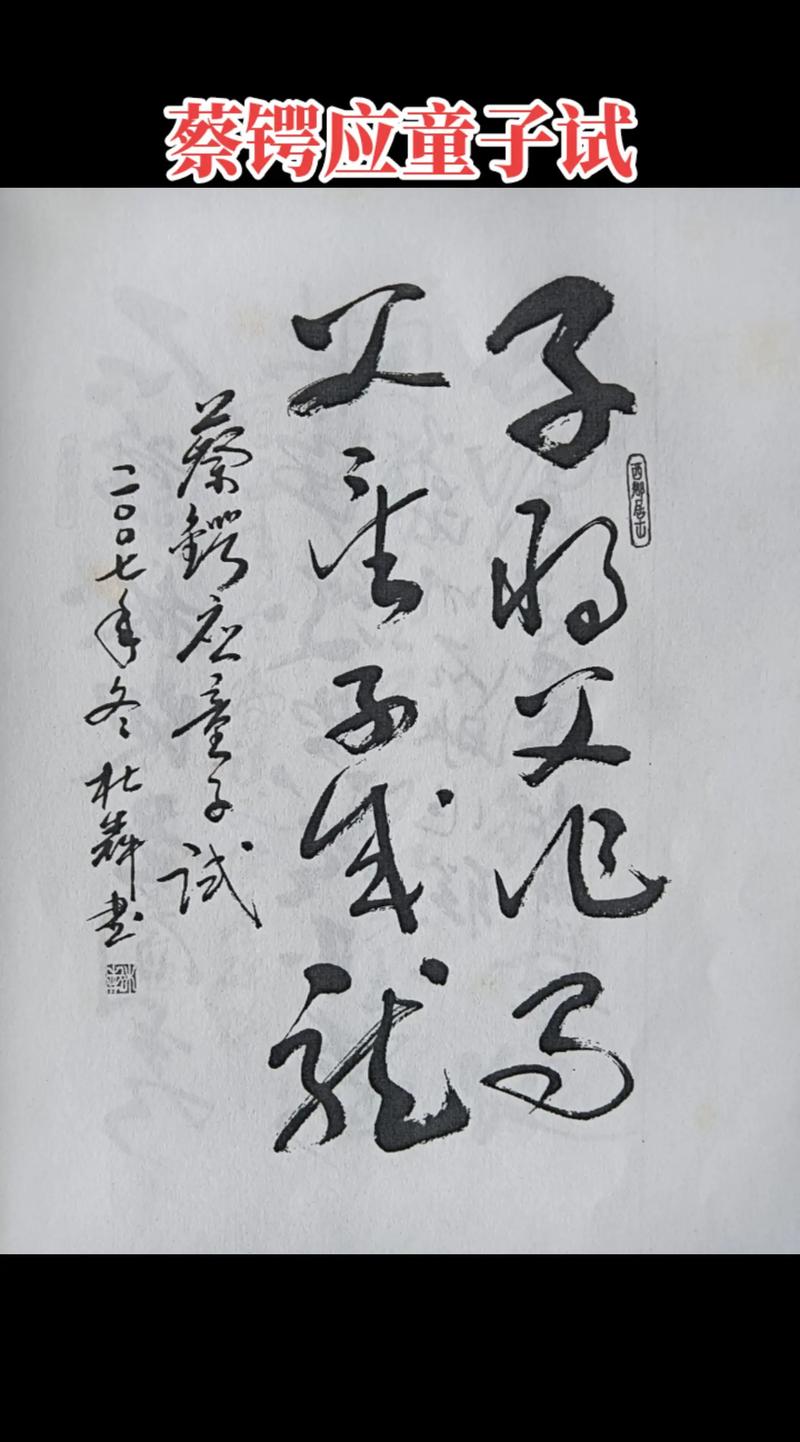 蔡锷应童子试
子将父作马
西乡居士
父望子成龙
蔡锷应童子试
二〇〇七年冬杜辉书